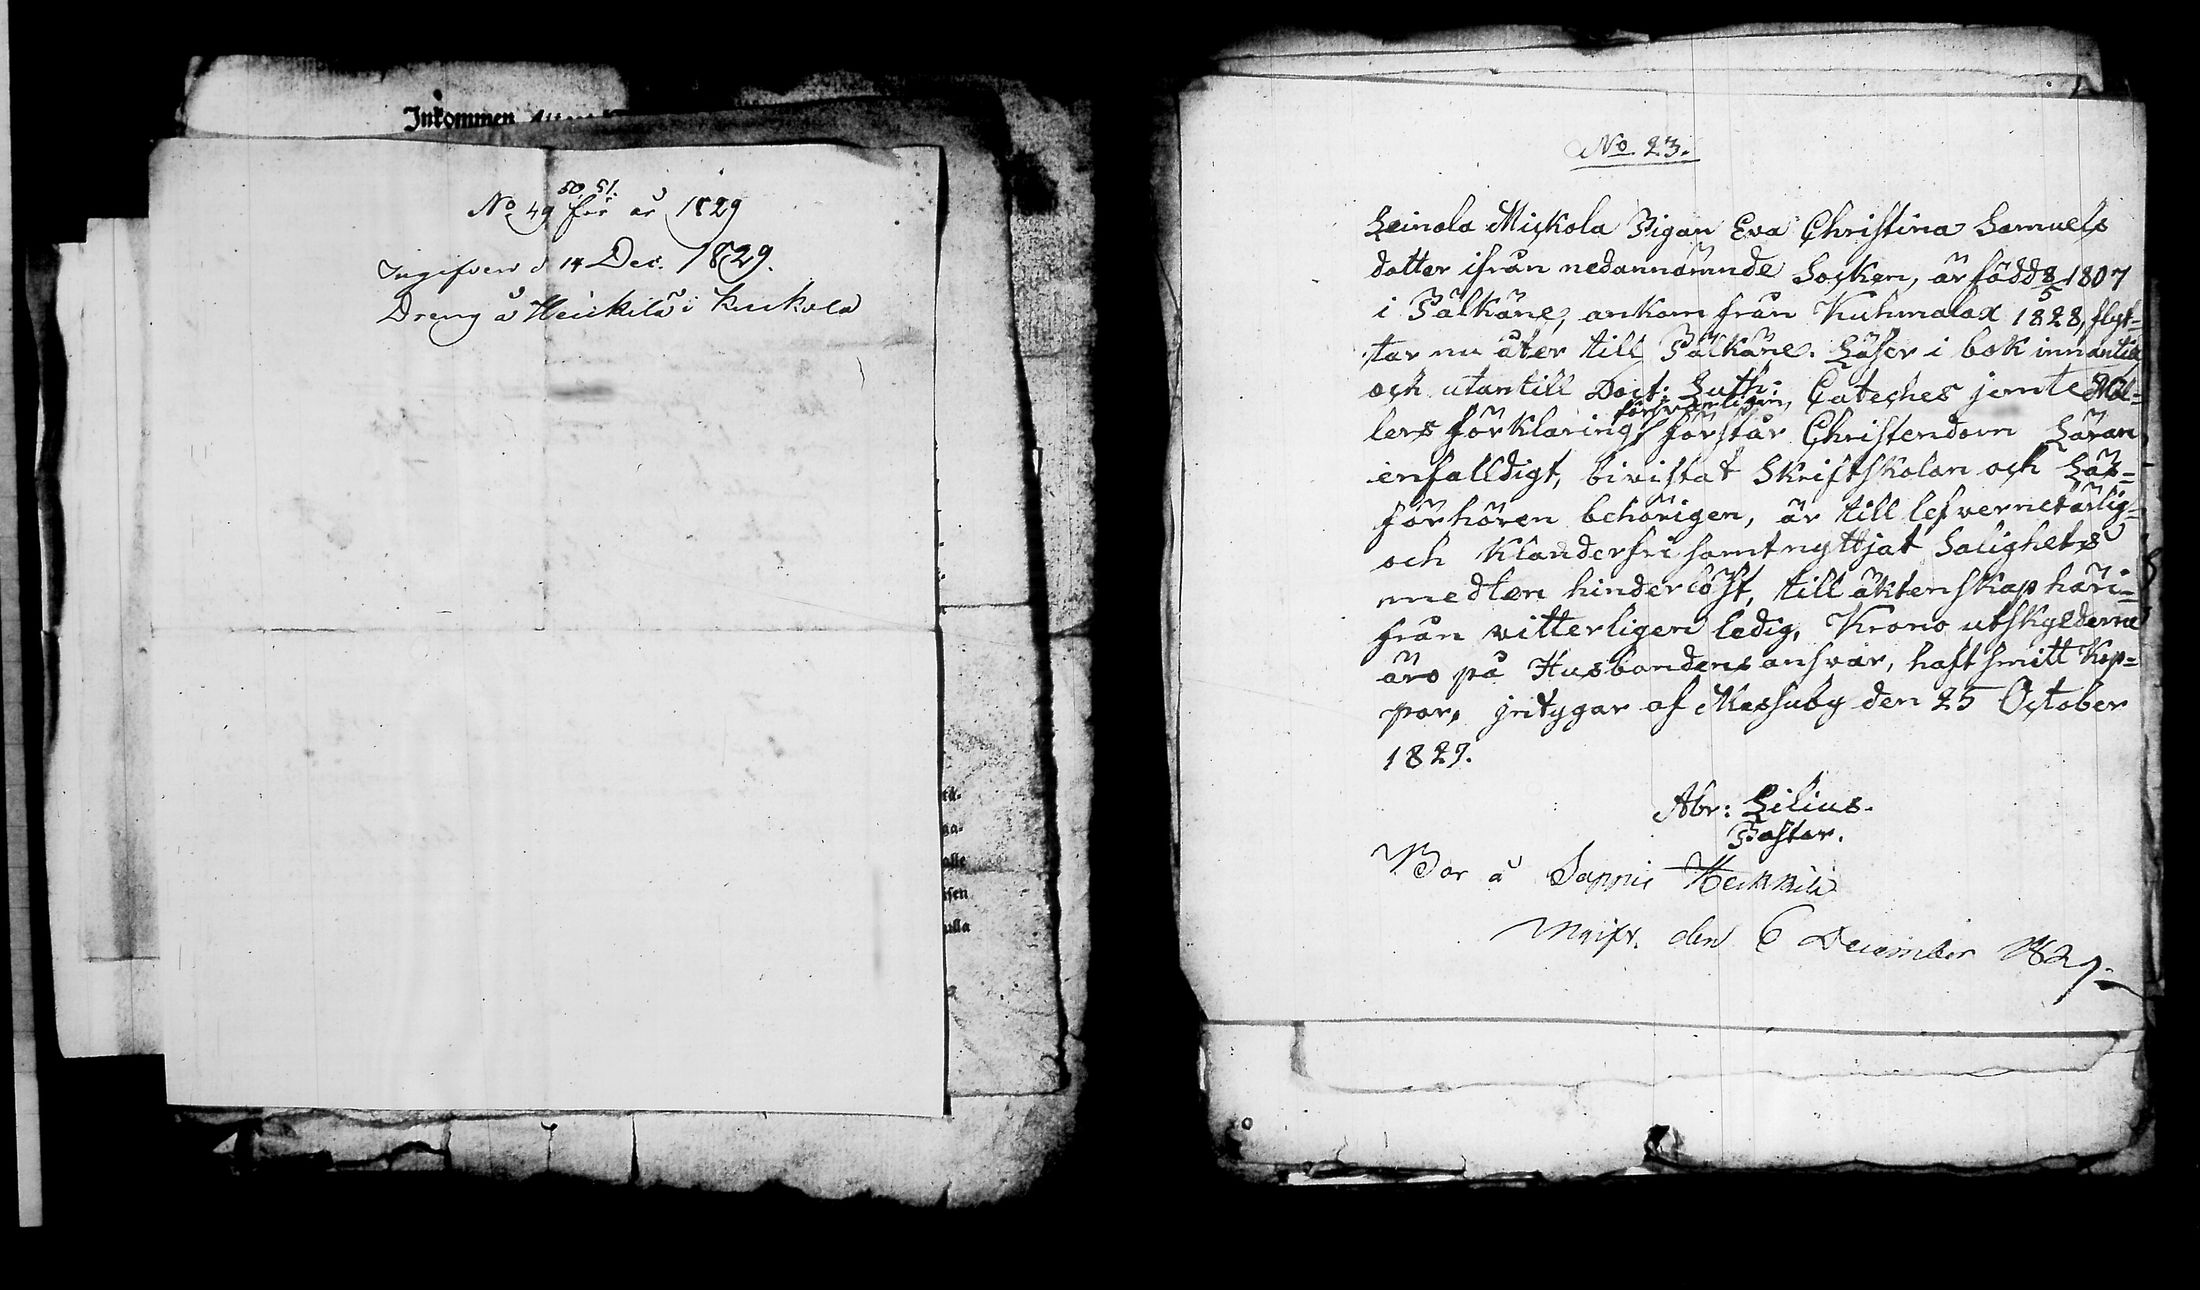 Inkommen
50. 51.
No 49 för år 1829
Ingifven d 14 Dec. 1829.
Dreng å Heikilä i Kuckola
tå-
ga-
alle
isen
ulla
No 23.
Leinola Mickola Pigan Eva Christina Samuels
dotter ifrån nedannämnde Socken, är född 8/5 1807
i Pälkäne, ankom från Kuhmalax 1828, flyt-
tar nu åter till Pälkäne. Läser i bok innantill
och utantill Doct: Luth: Cateches jemte Möl-
lers förklaring försvarligen, förstår Christendom Läran
enfalldigt, bivistat Skriftskolan och Läs-
förhören behörigen, är till lefvernet ärlig
och Klanderfri samt nyttjat Salighets
medlen hinderlöst, till äktenskap häri-
från vitterligen ledig, Krono utskylderna
äro på Husbondens answar, haft smitt Kop-
por, intygar af Messuby den 25 October
1829.
Abr: Lilius.
Pastor.
Bor å Sappis Heikkilä
Uppv. den 6 December 1829.